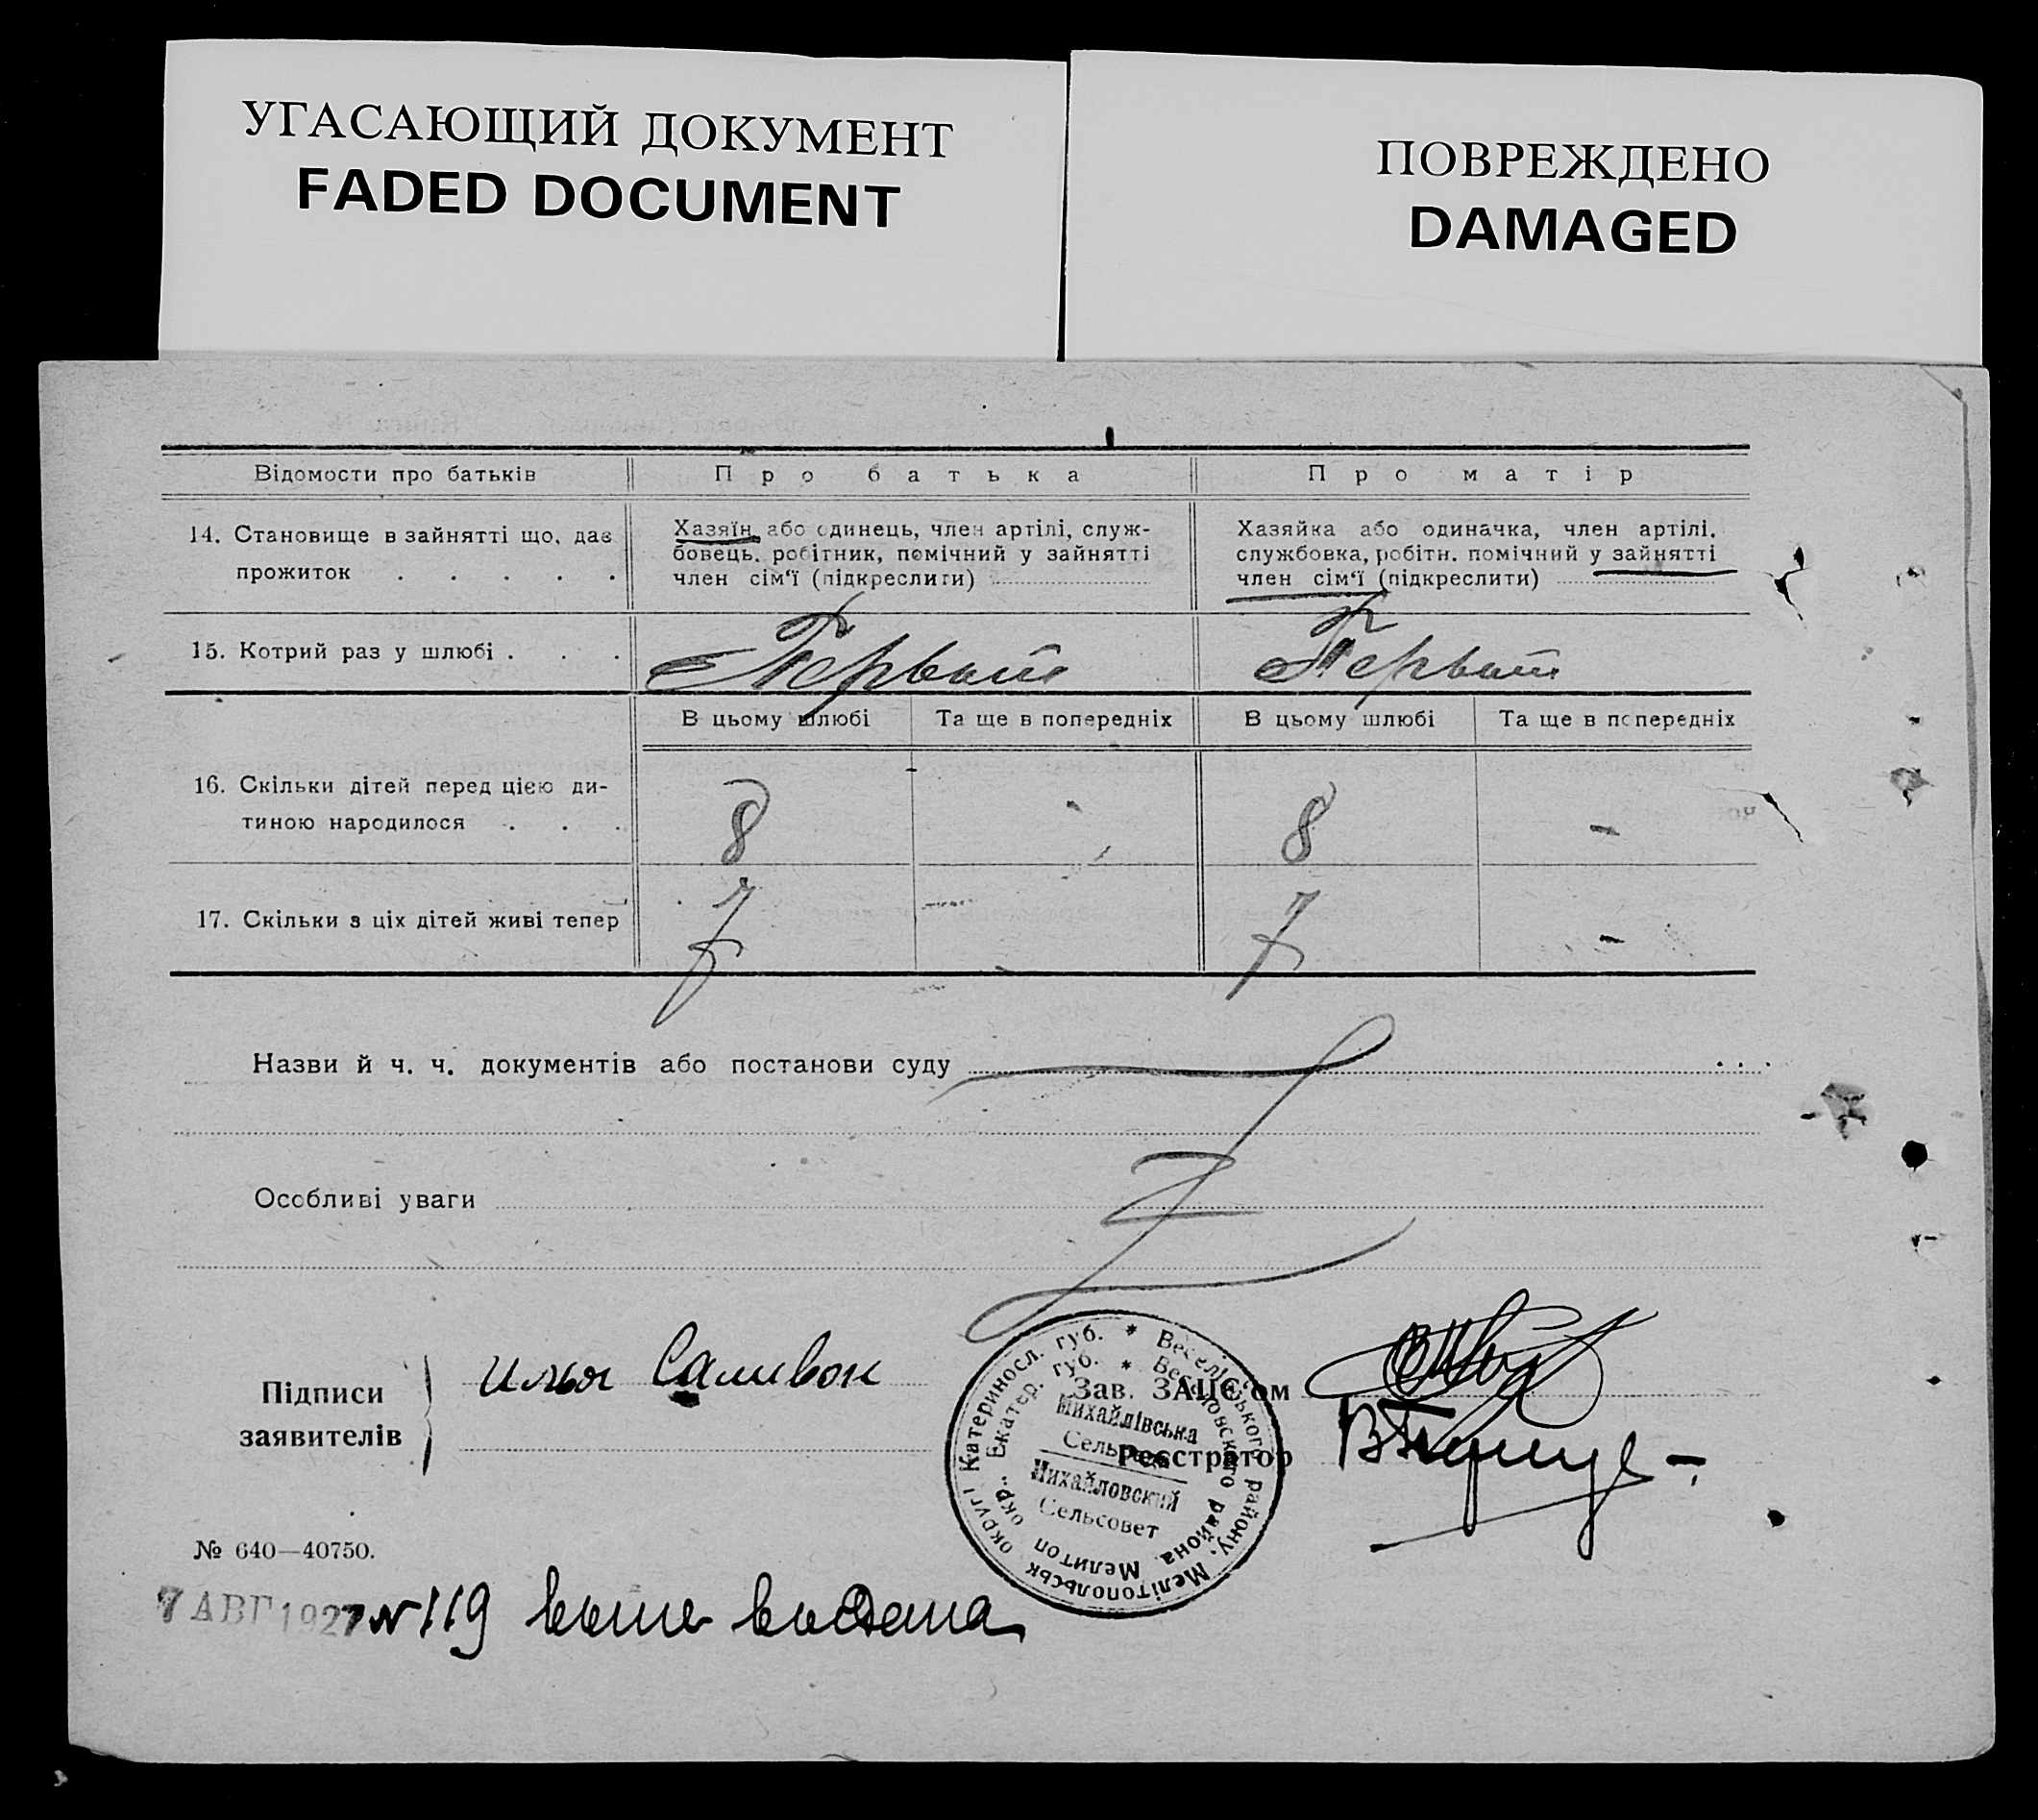 УГАСАЮЩИЙ ДОКУМЕНТ
FADED DOCUMENT
ПОВРЕЖДЕНО
DAMAGED
Відомости про батьків
Про батька
Про матір
14. Становище в зайнятті що, дає
прожиток . . . . .
Хазяїн або одинець, член артілі, служ-
бовець, робітник, помічний у зайнятті
член сім‘ї (підкреслити)
Хазяйка або одиначка, член артілі,
службовка, робітн. помічний у зайнятті
член сім‘ї (підкреслити)
15. Котрий раз у шлюбі . . .
Первый
Первый
В цьому шлюбі
Та ще в попередніх
В цьому шлюбі
Та ще в попередніх
16. Скільки дітей перед цією ди-
тиною народилося . . .
8
8
-
17. Скільки з ціх дітей живі тепер
7
7
-
Назви й ч. ч. документів або постанови суду
Особливі уваги
Підписи
заявителів
Илья Саливон
Зав. ЗАЦС‘ом
Реєстратор
Катериносл. губ. * Веселівського району, Мелітопольськ округі
Екатер. губ. * Веселовского района Мелитоп окр.
Михайлівська
Сельрада
Михайловский
Сельсовет
№ 640—40750.
7 АВГ 1927 № 119